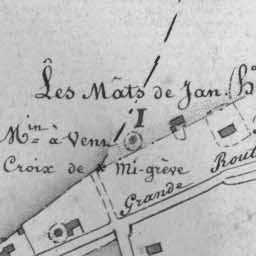 Les Mâts de Jan. (h
I
Min à Vent
Croix de Mi-grève
Grande Rout